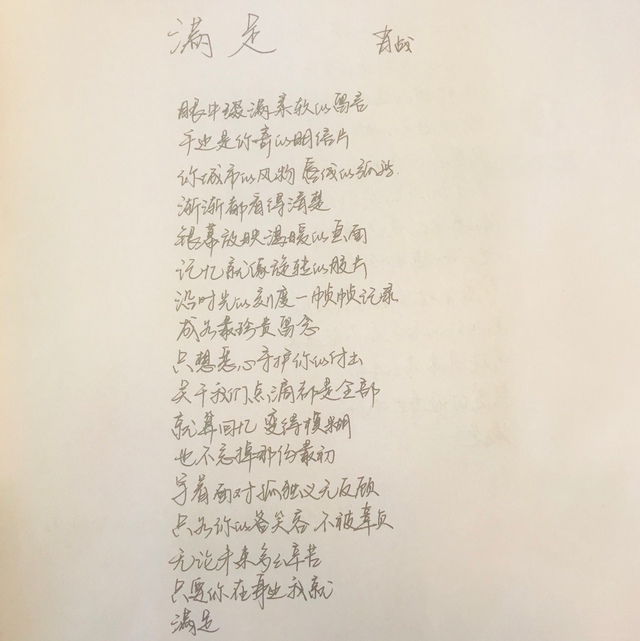 满足 肖战
眼中缀满柔软的留言
手边是你寄的明信片
你城市的风物 唇线的弧
渐渐都看得清楚
银幕放映温暖的画面
记忆就像旋转的胶片
沿时光的刻度一帧帧记录
成为最珍贵留念
只想悉心守护你的付出
关于我们点滴都是全部
就算回忆变得模糊
也不忘掉那份最初
穿着面对孤独义无反顾
只为你的笑容不被辜负
无论未来多么辛苦
只要你在身边我就
满足